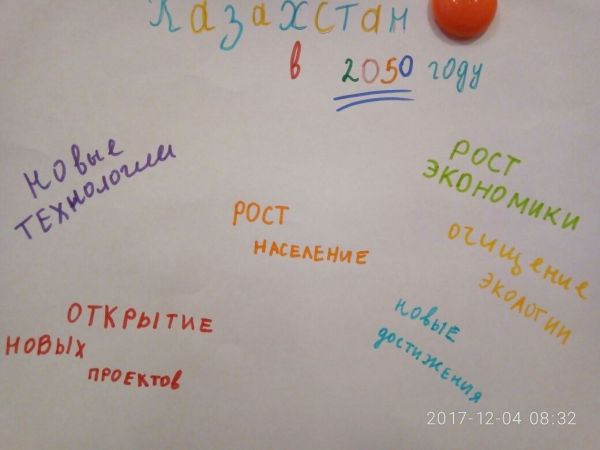 Казахстан
в 2050 году
новые
технологии
РОСТ
ЭКОНОМИКИ
РОСТ
НАСЕЛЕНИЕ
очищение
экологии
ОТКРЫТИЕ
НОВЫХ
ПРОЕКТОВ
новые
достижения
2017-12-04 08:32